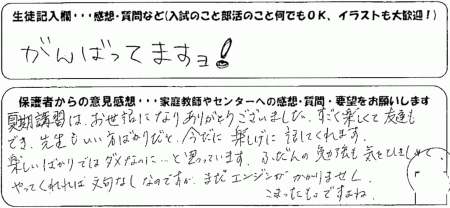 生徒記入欄・・・感想・質問など(入試のこと部活のこと何でもOK、イラストも大歓迎!)
がんばってますョ!
保護者からの意見感想・・・家庭教師やセンターへの感想・質問・要望をお願いします
夏期講習は、お世話になりありがとうございました。すごく楽しくて友達も
でき、先生もいい方ばかりだと、今だに楽しげに話してくれます。
楽しいばかりではダメなのに…と思っています。ふだんの勉強も気をひきしめて、
やってくれれば文句なしなのですが、まだエンジンがかかりません。
こまったものですよね。